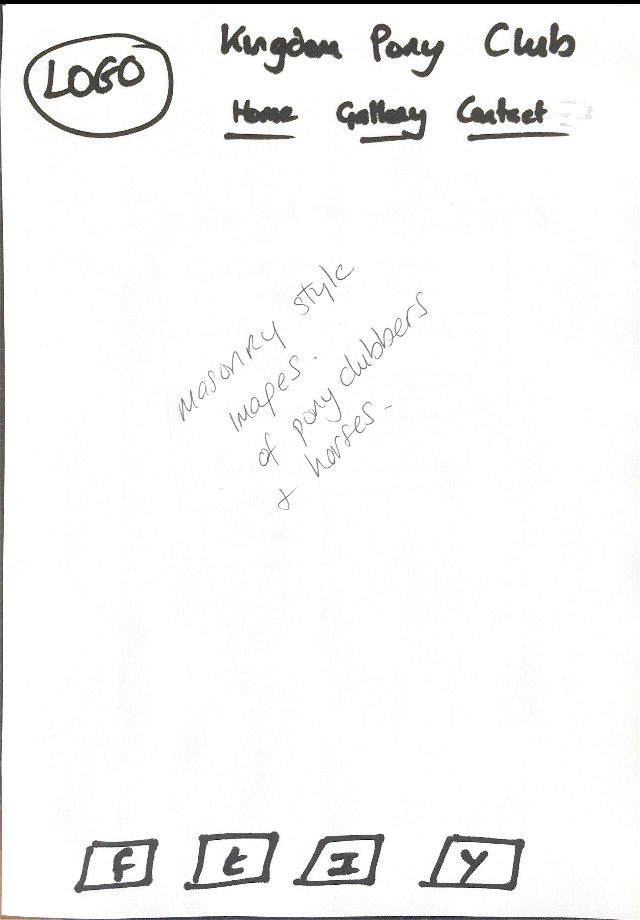 LOGO
Kingdom Pony Club
Home Gallery Contact
masonry style
images.
of pony clubbers
& horses.
f t I Y